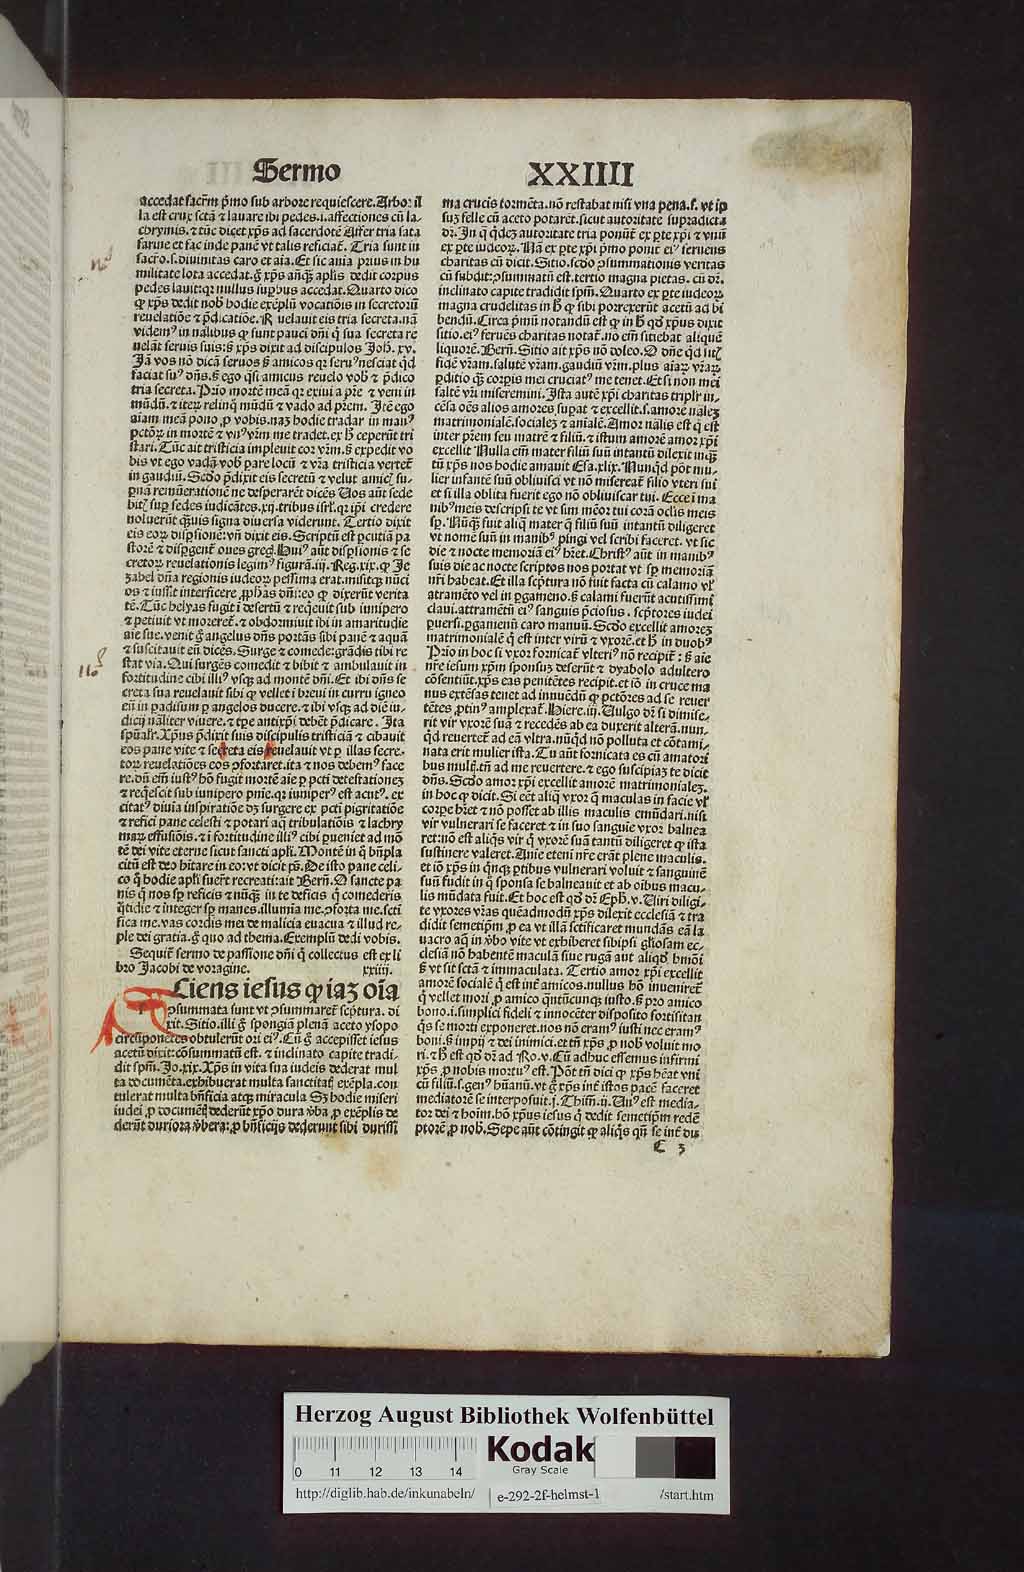 Sermo XXIIII
accedat sacrm̄ p̄mo sub arbore requiescere. Arbor il
la est crux sctā ⁊ lauare ibi pedes .i. affectiones cū la-
chrymis. ⁊ tūc dicet xp̄s ad sacerdotē Affer tria sata
farine et fac inde panē vt talis reficiat̄. Tria sunt in
sacro. s. diuinitas caro et aīa. Et sic anīa prius in hu
militate lota accedat.
pedes lauit: qꝛ nullus supbus accedat. Quarto dico
reuelatiōe ⁊ p̄dicatiōe. Reuelauit eis tria secreta. nā
uelāt seruis suis: s̄ xp̄s dixit ad discipulos Joh̄. xv.
Jā vos nō dicā seruos s̄ amicos
tria secreta. Prīo mortē meā qꝛ exiui a pr̄e ⁊ veni in
mūdū. ⁊ iteꝝ relinq̄ mūdū ⁊ vado ad pr̄em. Itē ego
aīam meā pono ꝓ vobis. naꝫ hodie tradar in man⁹
stari. Tūc ait tristicia impleuit cor vr̄m. s̄ expedit vo
bis vt ego vadā vob̄ pare locū ⁊ vr̄a tristicia vertet̄
in gaudiū. Scdo p̄dixit eis secretū
noluerūt q̄uis signa diuersa viderunt. Tertio dixit
eis eoꝝ disp̄sionē: vn̄ dixit eis. Scriptū est pcutiā pa
storē ⁊ dispgent̄ oues greḡ. Hui⁹ aūt disp̄sionis ⁊ se
cretoꝝ reuelationis legim⁹ figurā. iij. Reg. xix. ꝙ Je
zabel dn̄a regionis iudeoꝝ pessima erat. misitqꝫ nūci
os ⁊ iussit interficere ꝓph̄as dn̄i: eo ꝙ dixerūt verita
tē. Tūc helyas fugit ī desertū ⁊ req̄euit sub iunipero
⁊ petiuit vt moreret̄. ⁊ obdormiuit ibi in amaritudie
aīe sue. venit g̊ angelus dn̄s portās sibi panē ⁊ aquā
⁊ suscitauit eū dicēs. Surge ⁊ comede: grādis tibi re
stat via. Qui surgēs comedit ⁊ bibit ⁊ ambulauit in
fortitudine cibi illi⁹ vsqꝫ ad montē dn̄i. Et ibi dn̄s se
creta sua reuelauit sibi ꝙ vellet ī breui in curru igneo
eū in padisum p angelos ducere. ⁊ ibi vsqꝫ ad diē iu-
dicij nāliter viuere. ⁊ tp̄e antixp̄i debet̄ p̄dicare. Ita
spūalr̄. Xp̄us p̄dixit suis discipulis tristiciā ⁊ cibauit
eos pane vite ⁊ secreta eis reuelauit vt p illas secre-
toꝝ reuelatiōes eos ꝯfortaret. ita ⁊ nos debem⁹ face
re. dū em̄ iust⁹ hō fugit mortē aīe p pcti detestationeꝫ
⁊ req̄escit sub iunipero pnīe. qꝛ iuniper⁹ est acut⁹. ex
citat⁹ diuīa inspiratiōe dꝫ surgere ex pcti pigritatiōe
⁊ refici pane celesti ⁊ potari aq̄ tribulatiōis ⁊ lachry
maꝝ effusiōis. ⁊ ī fortitudine illi⁹ cibi pueniet ad mō
tē dei vite eterne sicut sancti apl̄i. Montē in q̊ bn̄pla
citū est deo h̄itare in eo: vt dicit ps̄. De isto pane celi-
co q̊ hodie apl̄i suer̄t recreati: ait Bern̄. O sancte pa
nis q̄ nos sp̄ reficis ⁊ nūq̄ꝫ in te deficis q̄ comederis
q̊tidie ⁊ integer sp̄ manes. illumīa me. ꝯforta me. scti
fica me. vas cordis mei de malicia euacua ⁊ illud re-
ple dei gratia. g̊ quo ad thema. Exemplū dedi vobis.
Sequit̄ sermo de passione dn̄i q̊ collectus est ex li
bro Jacobi de voragine. xxiiij.
Sciens iesus ꝙ iaꝫ oīa
ꝯsummata sunt vt ꝯsummaret̄ scp̄tura. di
xit. Sitio. illi g̊ spongiā plenā aceto ysopo
circūponētes obtulerūt ori ei⁹. Cū g̊ accepisset iesus
acetū dixit: cōsummatū est. ⁊ inclinato capite tradi-
dit spm̄. Jo. xix. Xp̄s in vita sua iudeis dederat mul
ta documēta. exhibuerat multa sanctitatꝭ exēpla. con
tulerat multa bn̄ficia atqꝫ miracula Sꝫ hodie miseri
iudei ꝓ documētꝭ dederūt xp̄o dura v̄ba ꝓ exēplis de
derūt duriora v̄bera: ꝓ bn̄ficijs dederunt sibi durissi
ma crucis tormēta. nō restabat nisi vna pena. s. vt ip
suꝫ felle cū aceto potarēt. sicut autoritate supradicta
dꝛ. In q̊ q̄dem autoritate tria ponūt̄ ex pte xp̄i ⁊ vnū
ex pte iudeoꝝ. Nā ex pte xp̄i p̄mo ponit̄ ei⁹ feruens
charitas cū dicit. Sitio. scdo ꝯsummationis veritas
cū subdit: ꝯsumatū est. tertio magna pietas. cū dꝛ.
inclinato capite tradidit spm̄. Quarto ex pte iudeoꝝ
magna crudelitas in h̄ ꝙ sibi porrexerūt acetū ad bi
bendū. Circa p̄mū notandū est ꝙ in h̄ qd̄ xp̄us dixit
sitio. ei⁹ feruēs charitas notat̄. nō em̄ sitiebat aliquē
liquorē. Bern̄. Sitio ait xp̄s nō doleo. O dn̄e qd̄ sitꝭ
fidē vr̄am. salutē vr̄am. gaudiū vr̄m. plus aīaꝝ vr̄aꝝ
pditio q̄ꝫ corpis mei cruciat⁹ me tenet. Et si non mei
saltē vr̄i miseremini. Ista autē xp̄i charitas triplr̄ in-
cēsa oēs alios amores supat ⁊ excellit. s. amorē naleꝫ
matrimonialē. socialeꝫ ⁊ anīalē. Amor nālis est q̄ est
inter pr̄em seu matrē ⁊ filiū. ⁊ istum amorē amor xp̄i
excellit Nulla em̄ mater filiū suū intantū dilexit inqꝫ
tū xp̄s nos hodie amauit Esa. xlix. Nunqd̄ pōt mu-
lier infantē suū obliuisci vt nō misereat̄ filio vteri sui
et si illa oblita fuerit ego nō obliuiscar tui. Ecce ī ma
nib⁹ meis descripsi te vt sim mēor tui corā oclis meis
sp̄. Nūq̄ꝫ fuit aliq̄ mater q̄ filiū suū intantū diligeret
vt nomē suū in manib⁹ pingi vel scribi faceret. vt sic
die ⁊ nocte memoriā ei⁹ hr̄et. Christ⁹ aūt in manib⁹
suis die ac nocte scriptos nos portat vt sp̄ memoriā
nr̄i habeat. Et illa scp̄tura nō fuit facta cū calamo vl̄
atramēto vel in pgameno. s̄ calami fuerūt acutissimi
claui. attramētū ei⁹ sanguis p̄ciosus. scp̄tores iudei
puersi. pgamenū caro manuū. Scdo excellit amoreꝫ
matrimonialē q̄ est inter virū ⁊ vxorē. et h̄ in duob⁹
Prīo in hoc si vxor fornicat̄ vlteri⁹ nō recipit̄: s̄ aīe
nr̄e iesum xp̄m sponsuꝫ deserūt ⁊ dyabolo adultero
cōsentiūt. xp̄s eas penitētes recipit. et iō in cruce ma
nus extēsas tenet ad innuēdū ꝙ pctōres ad se reuer
tētes ꝓtin⁹ amplexat̄. Hiere. iij. Uulgo dꝛ si dimise-
rit vir vxorē suā ⁊ recedēs ab ea duxerit alterā. nun-
qd̄ reuertet̄ ad eā vltra. nūqd̄ nō polluta et cōtami-
nata erit mulier ista. Tu aūt fornicata es cū amatori
bus multꝭ. tn̄ ad me reuertere. ⁊ ego suscipiaꝫ te dicit
dn̄s. Scdo amor xp̄i excellit amorē matrimonialeꝫ.
in hoc ꝙ dicit. Si eēt aliq̄ vxor q̄ maculas in facie vl̄
corpe hr̄et ⁊ nō posset ab illis maculis emūdari. nisi
vir vulnerari se faceret ⁊ in suo sanguie vxor balnea
ret: nō est aliq̄s vir q̄ vxorē suā tantū diligeret ꝙ ista
sustinere valeret. Anīe etenī nr̄e erāt plene maculis.
et iō xp̄s in q̄nqꝫ ptibus vulnerari voluit ⁊ sanguinē
suū fudit in q̊ sponsa se balneauit et ab oībus macu-
lis mūdata fuit. Et hoc est qd̄ dꝛ Eph̄. v. Uiri diligi-
te vxores vr̄as quēadmodū xp̄s dilexit ecclesiā ⁊ tra
didit semetip̄m ꝓ ea vt illā sctificaret mundās eā la
uacro aq̄ in v̄bo vite vt exhiberet sibip̄si gl̄iosam ec-
clesiā nō habentē maculā siue rugā aut aliqd̄ hmōi
s̄ vt sit sctā ⁊ immaculata. Tertio amor xp̄i excellit
amorē socialē q̄ est int̄ amicos. nullus hō inueniret̄
q̄ vellet mori ꝓ amico q̄ntūcunqꝫ iusto. s̄ pro amico
bono. i. simplici fideli ⁊ innocēter disposito fortisitan
q̄s se morti exponeret. nos nō eram⁹ iusti nec eram⁹
boni. s̄ impij ⁊ dei inimici. et tn̄ xp̄s ꝓ nob̄ voluit mo
ri. ⁊ h̄ est qd̄ dꝛ ad Ro. v. Cū adhuc essemus infirmi
xp̄s ꝓ nobis mortu⁹ est. Pōt tn̄ dici ꝙ xp̄s hēat vnī
cū filiū. s. gen⁹ hūanū. vt g̊ xp̄s int̄ istos pacē faceret
mediatorē se interposuit. j. Thim̄. ij. Un⁹ est media-
tor dei ⁊ hoīm. hō xp̄us iesus q̄ dedit semetip̄m redē
ptorē ꝓ nob̄. Sepe aūt cōtingit ꝙ aliq̄s qn̄ se int̄ du
C 3
Herzog August Bibliothek Wolfenbüttel
Kodak
Gray Scale
0 11 12 13 14
http://diglib.hab.de/inkunabeln/ e-292-2f-helmst-1 /start.htm